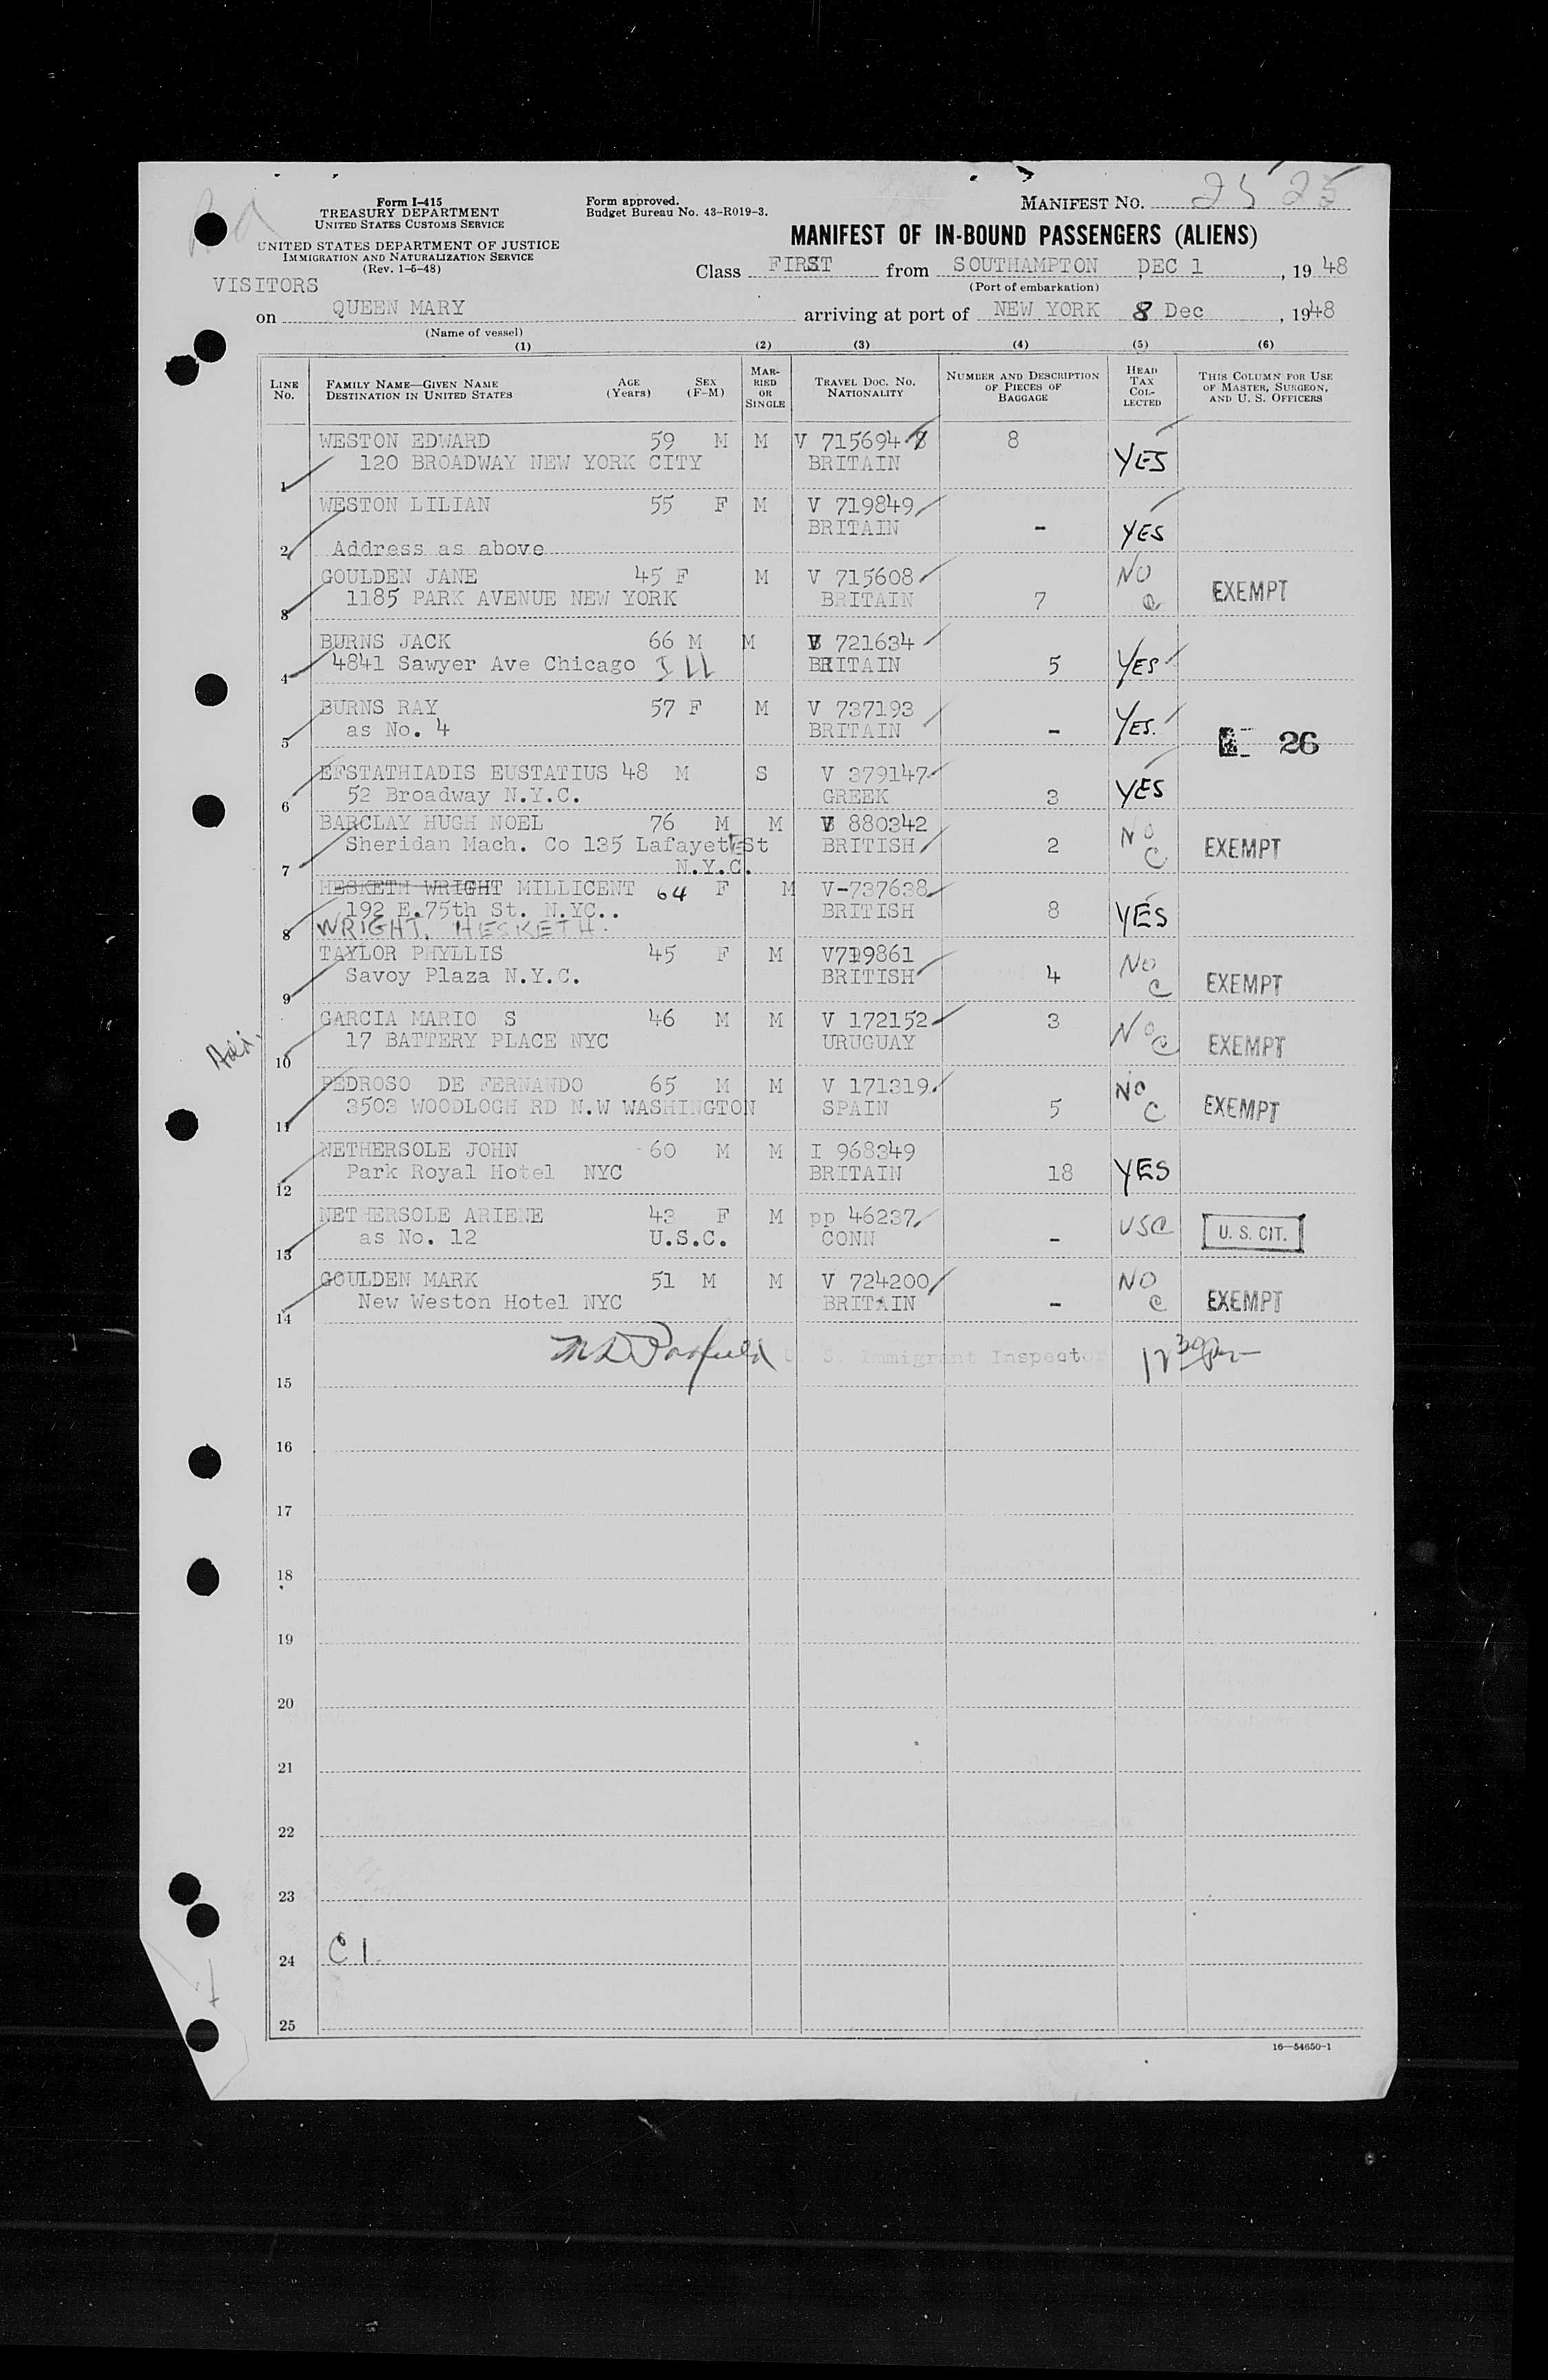 Form I-415
TREASURY DEPARTMENT
UNITED STATES CUSTOMS SERVICE
UNITED STATES DEPARTMENT OF JUSTICE
IMMIGRATION AND NATURALIZATION SERVICE
(Rev. 1-5-48)
Form approved.
Budget Bureau No. 43-R019-3.
MANIFEST NO. 25 25
MANIFEST OF IN-BOUND PASSENGERS (ALIENS)
Class FIRST from SOUTHAMPTON DEC 1, 1948
(Port of embarkation)
VISITORS
on QUEEN MARY arriving at port of NEW YORK 8 Dec, 1948
(Name of vessel)
(1) (2) (3) (4) (5) (6)
LINE No. FAMILY NAME—GIVEN NAME DESTINATION IN UNITED STATES AGE (Years) SEX (F-M) MARRIED OR SINGLE TRAVEL DOC. NO. NATIONALITY NUMBER AND DESCRIPTION OF PIECES OF BAGGAGE HEAD TAX COLLECTED THIS COLUMN FOR USE OF MASTER, SURGEON, AND U. S. OFFICERS
WESTON EDWARD 59 M M V 715694 8 8
1 120 BROADWAY NEW YORK CITY BRITAIN YES
WESTON LILIAN 55 F M V 719849
BRITAIN - YES
2 Address as above
GOULDEN JANE 45 F M V 715608 NO
3 1185 PARK AVENUE NEW YORK BRITAIN 7 C EXEMPT
BURNS JACK 66 M M V 721634
4 4841 Sawyer Ave Chicago Ill BRITAIN 5 YES
BURNS RAY 57 F M V 737193
5 as No. 4 BRITAIN - YES.
26
EFSTATHIADIS EUSTATIUS 48 M S V 379147
6 52 Broadway N.Y.C. GREEK 3 YES
BARCLAY HUGH NOEL 76 M M V 880342 NO
7 Sheridan Mach. Co 135 Lafayette St BRITISH 2 C EXEMPT
N.Y.C.
HESKETH WRIGHT MILLICENT 64 F M V-737638
192 E.75th St. N.YC.. BRITISH 8 YES
8 WRIGHT, HESKETH.
TAYLOR PHYLLIS 45 F M V719861 NO
9 Savoy Plaza N.Y.C. BRITISH 4 C EXEMPT
GARCIA MARIO S 46 M M V 172152 3 NO
10 17 BATTERY PLACE NYC URUGUAY C EXEMPT
PEDROSO DE FERNANDO 65 M M V 171319 NO
11 3503 WOODLOGH RD N.W WASHINGTON SPAIN 5 C EXEMPT
NETHERSOLE JOHN 60 M M I 968349
12 Park Royal Hotel NYC BRITAIN 18 YES
NETHERSOLE ARIENE 43 F M pp 46237 USC
13 as No. 12 U.S.C. CONN - U. S. CIT.
GOULDEN MARK 51 M M V 724200 NO
14 New Weston Hotel NYC BRITAIN - C EXEMPT
U. S. Immigrant Inspector 12 30 pm
15
16
17
18
19
20
21
22
23
24 C 1.
25
16—54650-1